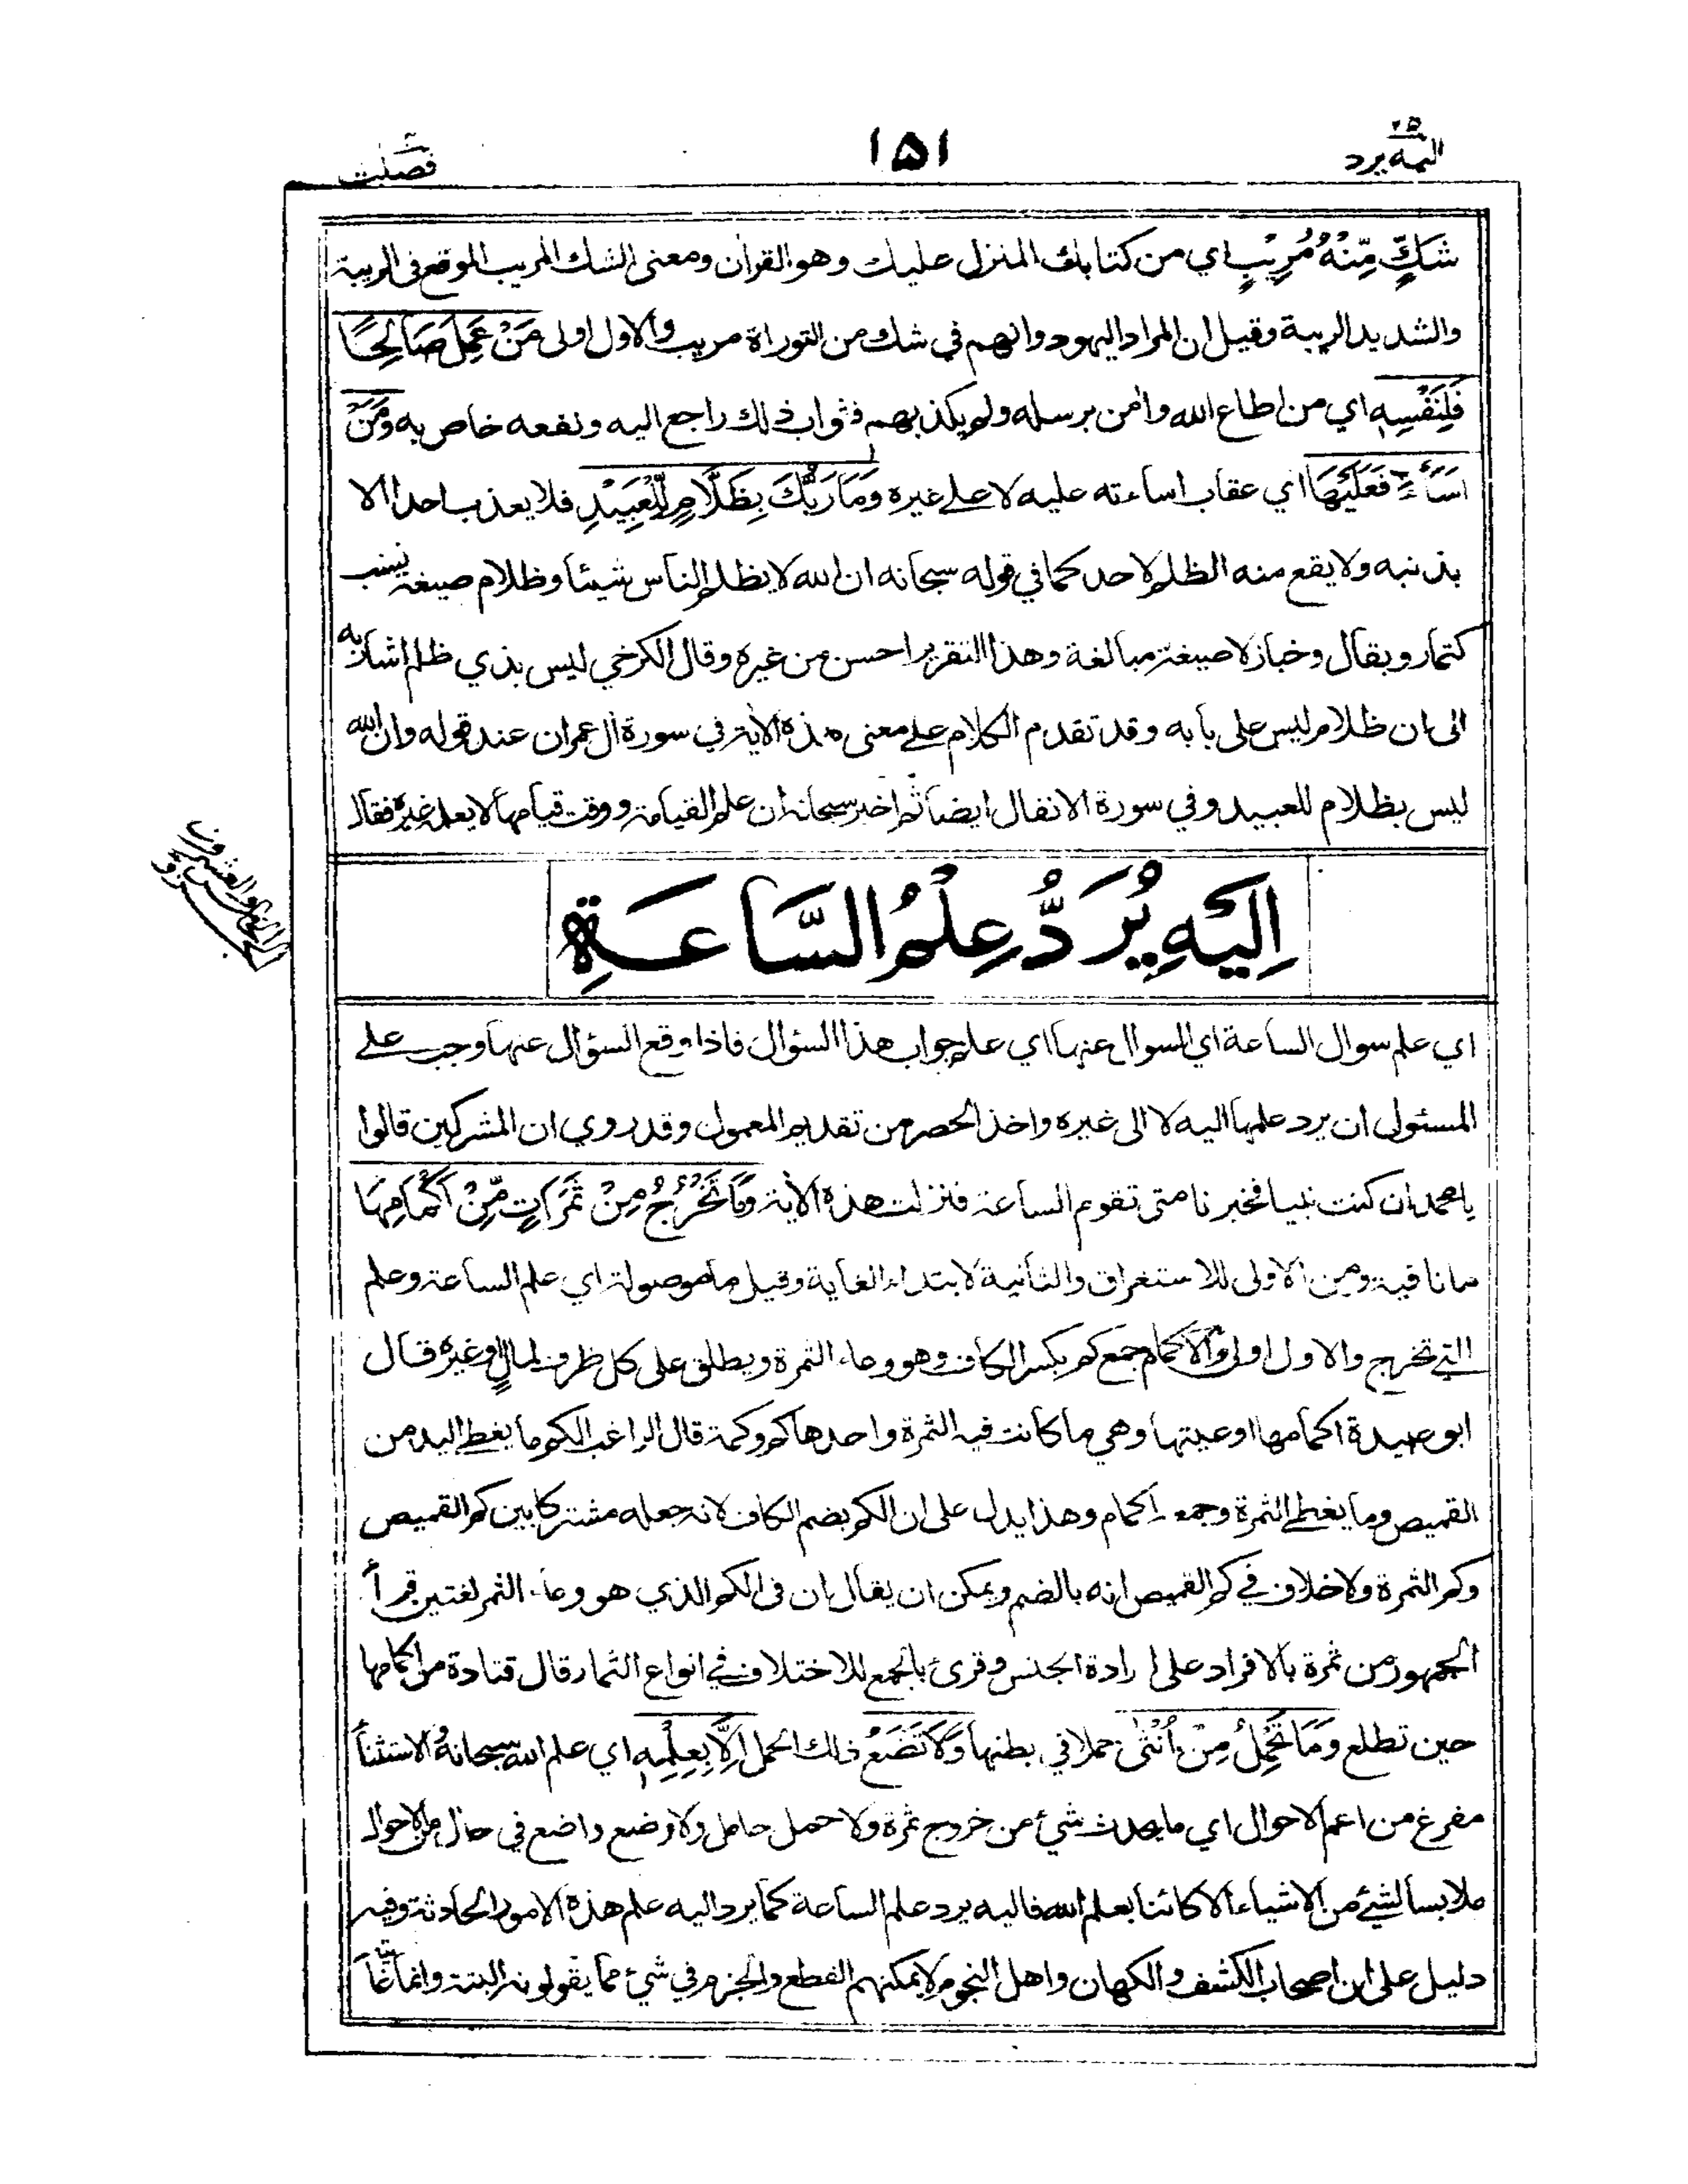 اليه يرد ٢٥
١٥١
فصلت
شَكٍّ مِّنْهُ مُرِيْبٍ اي من كتابك المنزل عليك وهو القران ومعنى الشك المريب الموقع فى الريبة
والشديد الريبة وقيل ان المراد اليهود وانهم في شك من التوراة مريب والاول اولى مَنْ عَمِلَ صَالِحًا
فَلِنَفْسِهٖ اي من اطاع الله وامن برسله ولم يكذبهم فثواب ذلك راجع اليه ونفعه خاص به وَمَنْ
اَسَآءَ فَعَلَيْهَا اي عقاب اساءته عليه لا على غيره وَمَا رَبُّكَ بِظَلَّامٍ لِّلْعَبِيْدِ فلا يعذب احدا الا
بذنبه ولا يقع منه الظلم لاحد كما في قوله سبحانه ان الله لا يظلم الناس شيئا وظلام صيغة نسب
كتمار وبقال وخباز لا صيغة مبالغة وهذا التقرير احسن من غيره وقال الكرخي ليس بذي ظلم اشار به
الى ان ظلام ليس على بابه وقد تقدم الكلام على معنى هذه الاية في سورة ال عمران عند قوله وان الله
ليس بظلام للعبيد وفي سورة الانفال ايضا ثم اخبر سبحانه ان علم القيامة ووقت قيامها لا يعلمه غيره فقال
الجزو الخامس والعشرون
اِلَيْهِ يُرَدُّ عِلْمُ السَّاعَةِ
اي علم سوال الساعة اي السوال عنها اي علم جواب هذا السؤال فاذا وقع السؤال عنها وجب على
المسئول ان يرد علمها اليه لا الى غيره واخذ الحصر من تقديم المعمول وقد روي ان المشركين قالوا
يا محمد ان كنت نبيا فخبرنا متى تقوم الساعة فنزلت هذه الاية وَمَا تَخْرُجُ مِنْ ثَمَرَاتٍ مِّنْ اَكْمَامِهَا
ما نافية ومن الاولى للاستغراق والثانية لابتداء الغاية وقيل ما موصولة اي علم الساعة وعلم
التي تخرج والاول اولى والاكمام جمع كم بكسر الكاف وهو وعاء الثمرة ويطلق على كل ظرف لمال او غيره قال
ابو عبيدة اكمامها اوعيتها وهي ما كانت فيه الثمرة واحدها كم وكمة قال الراغب الكم ما يغطي اليد من
القميص وما يغطي الثمرة وجمعه اكمام وهذا يدل على ان الكم بضم الكاف لانه جعله مشتركا بين كم القميص
وكم الثمرة ولا خلاف في كم القميص انه بالضم ويمكن ان يقال ان فى الكم الذي هو وعاء الثمر لغتين قرأ
الجمهور من ثمرة بالافراد على ارادة الجنس وقرئ بالجمع للاختلاف في انواع الثمار قال قتادة من اكمامها
حين تطلع وَمَا تَحْمِلُ مِنْ اُنْثٰى حملا في بطنها وَلَا تَضَعُ ذلك الحمل اِلَّا بِعِلْمِهٖ اي علم الله سبحانه والاستثناء
مفرغ من اعم الاحوال اي ما يحدث شئ من خروج ثمرة ولا حمل حامل ولا وضع واضع في حال من الاحوال
ملابسا لشئ من الاشياء الا كائنا بعلم الله فاليه يرد علم الساعة كما يرد اليه علم هذه الامور الحادثة وفيه
دليل على ان اصحاب الكشف والكهان واهل النجوم لا يمكنهم القطع والجزم في شئ مما يقولونه البتة وانما